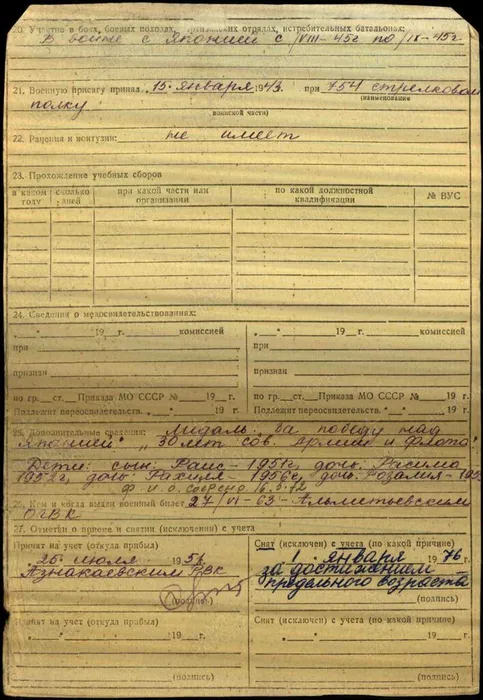 20. Участие в боях, боевых походах, партизанских отрядах, истребительных батальонах:
В войне с Японией с /VIII-45г по /IX-45г.
21. Военную присягу принял 15. января 1943. при 754 стрелковом
(наименование
полку
воинской части)
22. Ранения и контузии: не имеет
23. Прохождение учебных сборов
в каком году
сколько дней
при какой части или организации
по какой должностной квалификации
№ ВУС
24. Сведения о медосвидетельствованиях:
„ “ 19 г. комиссией
„ “ 19 г. комиссией
при
при
признан
признан
по гр. ст. Приказа МО СССР № 19 г.
по гр. ст. Приказа МО СССР № 19 г.
Подлежит переосвидетельств. „ “ 19 г.
Подлежит переосвидетельств. „ “ 19 г.
25. Дополнительные сведения: Мидаль „За победу над
Японией" „30 лет сов. армии и флота"
Дети: сын. Раис-1951г, дочь. Расима
1952г, дочь Рахиля-1956г, дочь Розалия-195
Ф. и. о. сверено
26. Кем и когда выдан военный билет 27/VI-63-Альметьевским
ОГВК
27. Отметки о приеме и снятии (исключении) с учета
Принят на учет (откуда прибыл)
25 июля 1956
Азнакаевским РВК
(подпись)
Снят (исключен) с учета (по какой причине)
1. января 1976 г.
за достижением
предельного возраста
(подпись)
Принят на учет (откуда прибыл)
„ “ 19 г.
(подпись)
Снят (исключен) с учета (по какой причине)
„ “ 19 г.
(подпись)